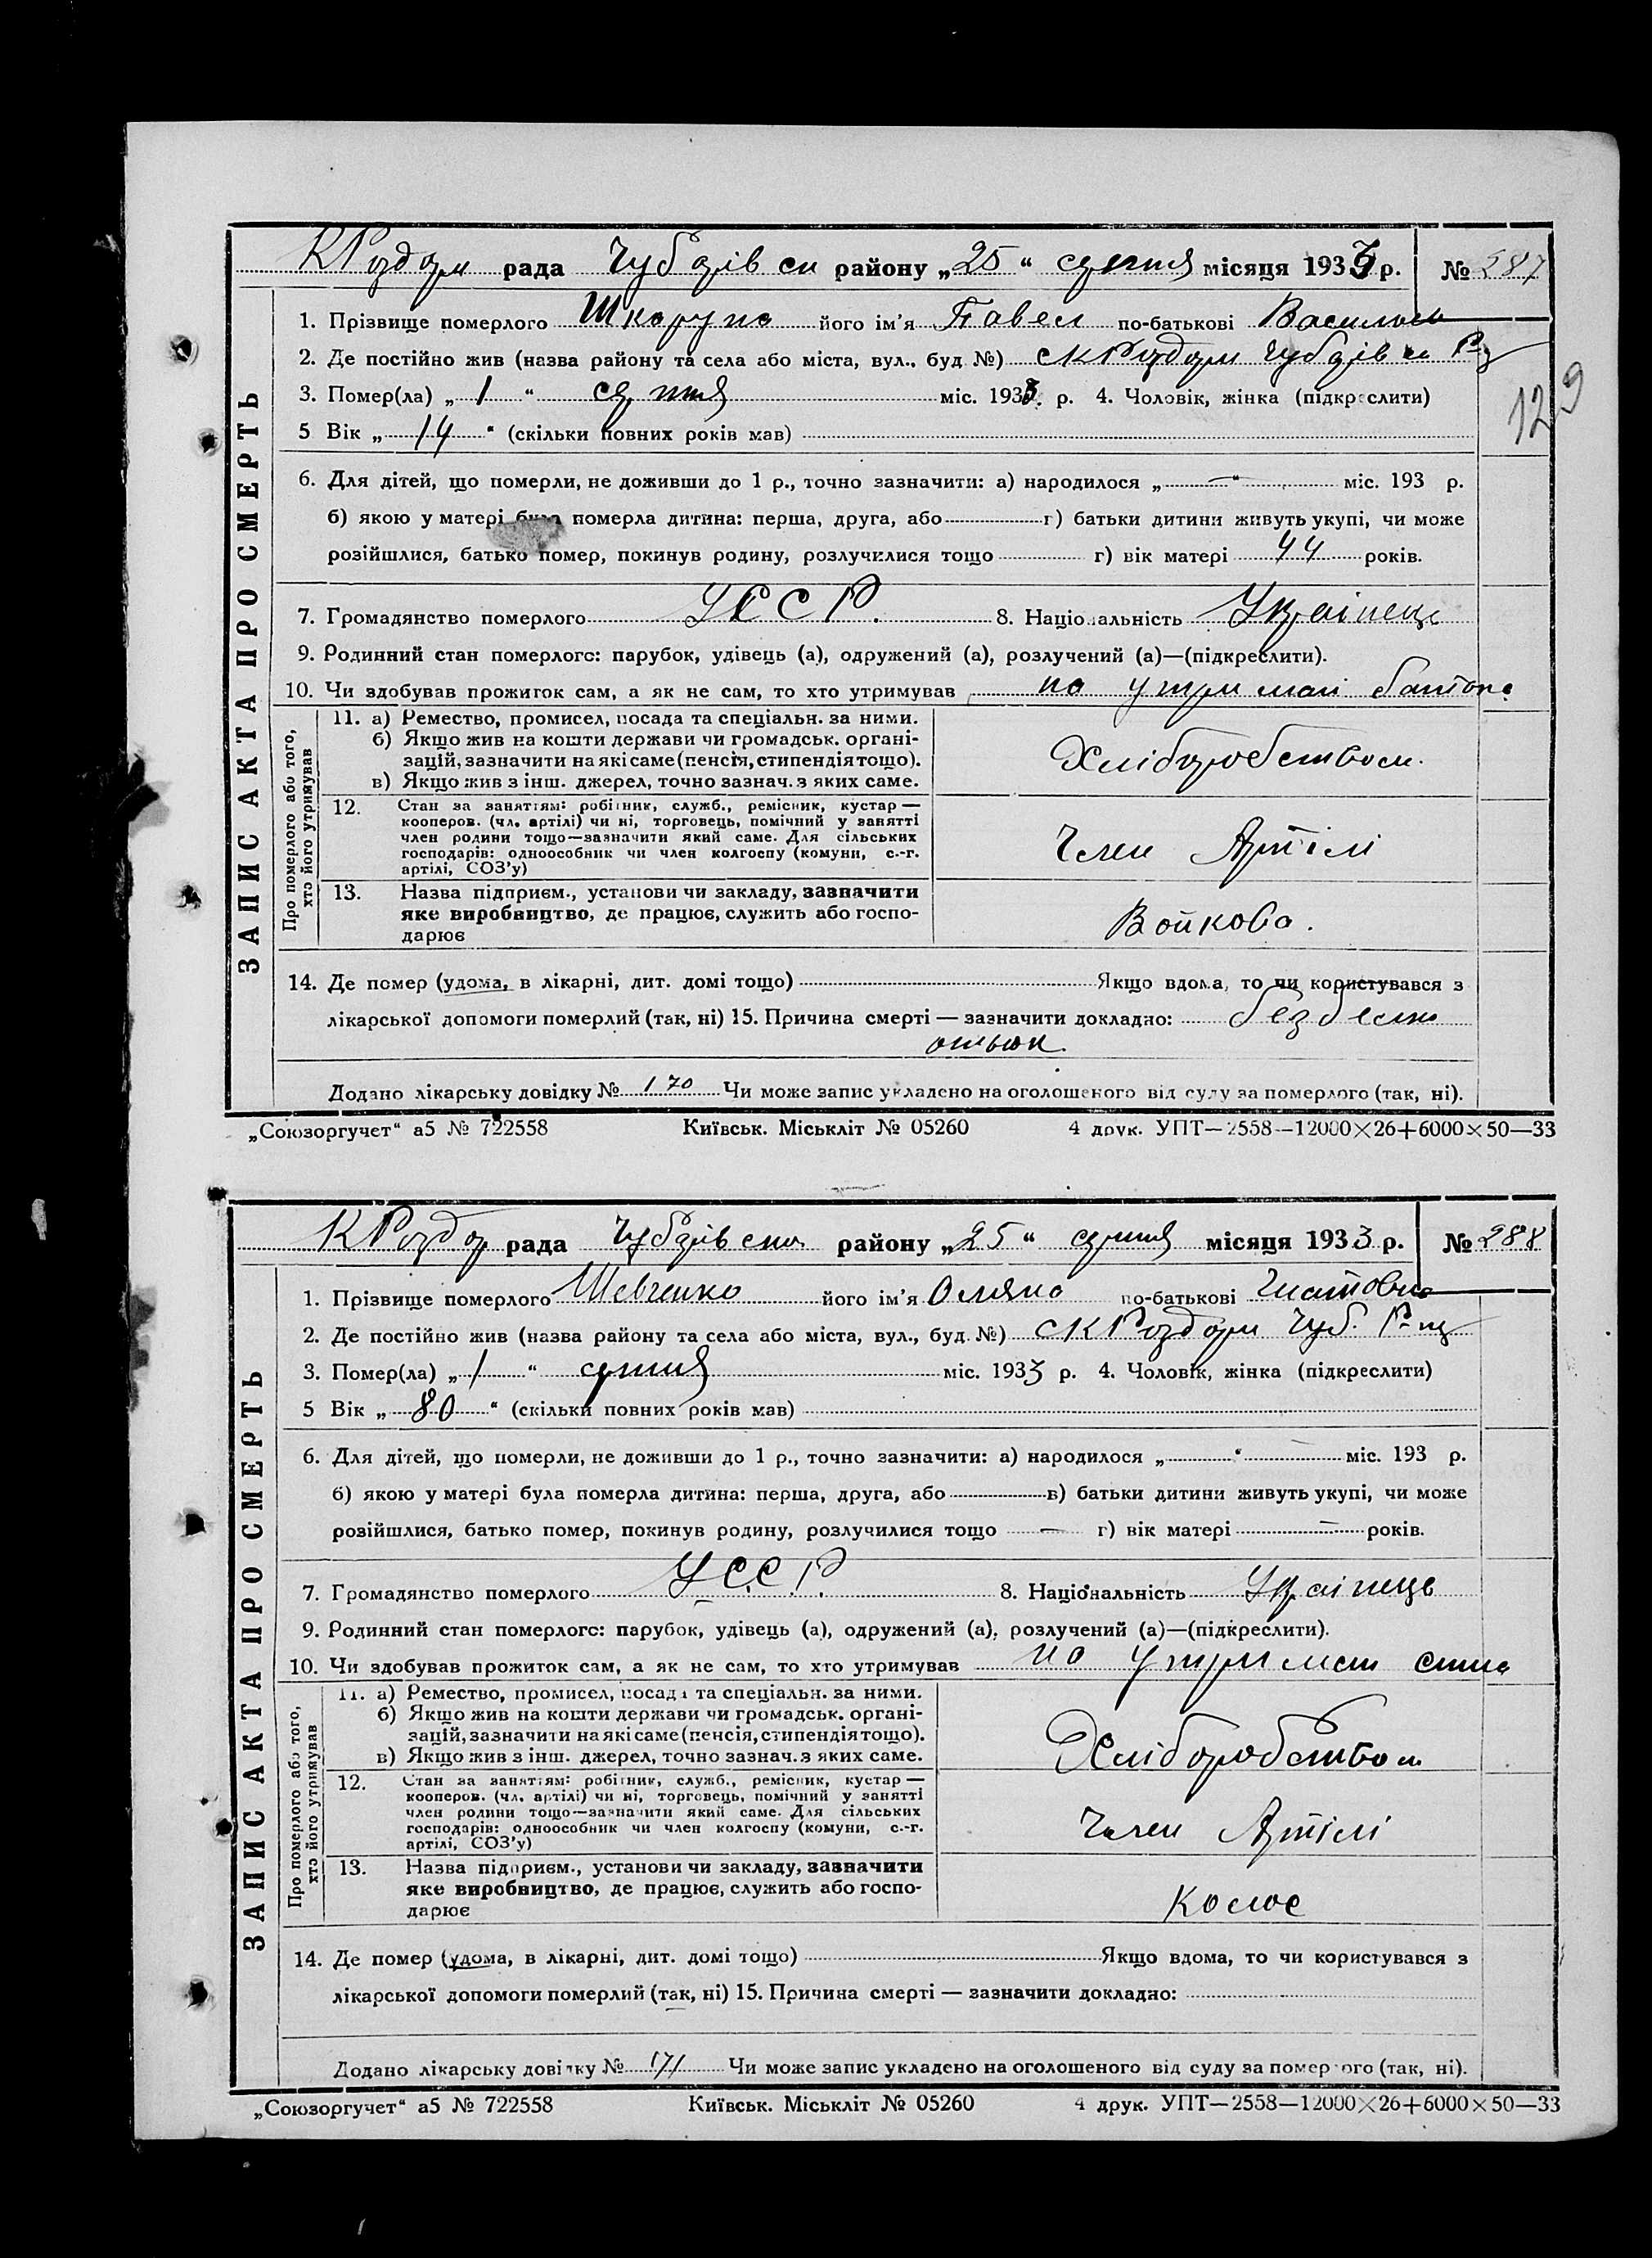 КРоздори рада Чубарівськ району „25“ серпня місяця 1933 р. № 287
1. Прізвище померлого Шкарупа його ім'я Павел по-батькові
2. Де постійно жив (назва району та села або міста, вул., буд. №) с КРоздори Чубарівськ Р-н
3. Помер(ла) „1“ серпня міс. 1933. р. 4. Чоловік, жінка (підкреслити)
5 Вік „14“ (скільки повних років мав)
6. Для дітей, що померли, не доживши до 1 р., точно зазначити: а) народилося „—“ міс. 193 р.
б) якою у матері була померла дитина: перша, друга, або г) батьки дитини живуть укупі, чи може
розійшлися, батько помер, покинув родину, розлучилися тощо г) вік матері 44 років.
7. Громадянство померлого УССР. 8. Національність Українець
9. Родинний стан померлого: парубок, удівець (а), одружений (а), розлучений (а)—(підкреслити).
10. Чи здобував прожиток сам, а як не сам, то хто утримував на утриманні батька
ЗАПИС АКТА ПРО СМЕРТЬ
Про померлого або того, хто його утримував
11. а) Ремество, промисел, посада та спеціальн. за ними.
б) Якщо жив на кошти держави чи громадськ. органі-
зацій, зазначити на які саме (пенсія, стипендія тощо).
в) Якщо жив з інш. джерел, точно зазнач. з яких саме.
Хліборобством.
12. Стан за заняттям: робітник, служб., ремісник, кустар —
кооперов. (чл. артілі) чи ні, торговець, помічний у занятті
член родини тощо—зазначити який саме. Для сільських
господарів: одноособник чи член колгоспу (комуни, с.-г.
артілі, СОЗ'у)
Член Артілі
13. Назва підприєм., установи чи закладу, зазначити
яке виробництво, де працює, служить або госпо-
дарює
Войкова.
129
14. Де помер (удома, в лікарні, дит. домі тощо) Якщо вдома, то чи користувався з
лікарської допомоги померлий (так, ні) 15. Причина смерті — зазначити докладно:
Додано лікарську довідку № 170 Чи може запис укладено на оголошеного від суду за померлого (так, ні).
„Союзоргучет“ а5 № 722558 Київськ. Міськліт № 05260 4 друк. УПТ—2558—12000×26+6000×50—33
КРоздор рада Чубарівська району „25“ серпня місяця 1933 р. № 288
1. Прізвище померлого Шевченко його ім'я по-батькові
2. Де постійно жив (назва району та села або міста, вул., буд. №) с КРоздори Чуб. Р-н
3. Помер(ла) „1“ серпня міс. 1933 р. 4. Чоловік, жінка (підкреслити)
5 Вік „80“ (скільки повних років мав)
6. Для дітей, що померли, не доживши до 1 р., точно зазначити: а) народилося „ “ — міс. 193 р.
б) якою у матері була померла дитина: перша, друга, або в) батьки дитини живуть укупі, чи може
розійшлися, батько помер, покинув родину, розлучилися тощо — г) вік матері — років.
7. Громадянство померлого УССР. 8. Національність Українець
9. Родинний стан померлого: парубок, удівець (а), одружений (а), розлучений (а)—(підкреслити).
10. Чи здобував прожиток сам, а як не сам, то хто утримував на утриман сина
ЗАПИС АКТА ПРО СМЕРТЬ
Про померлого або того, хто його утримував
11. а) Ремество, промисел, посада та спеціальн. за ними.
б) Якщо жив на кошти держави чи громадськ. органі-
зацій, зазначити на які саме (пенсія, стипендія тощо).
в) Якщо жив з інш. джерел, точно зазнач. з яких саме.
Хліборобством
12. Стан за заняттям: робітник, служб., ремісник, кустар —
кооперов. (чл. артілі) чи ні, торговець, помічний у занятті
член родини тощо—зазначити який саме. Для сільських
господарів: одноособник чи член колгоспу (комуни, с.-г.
артілі, СОЗ'у)
Член Артілі
13. Назва підприєм., установи чи закладу, зазначити
яке виробництво, де працює, служить або госпо-
дарює
Колос
14. Де помер (удома, в лікарні, дит. домі тощо) Якщо вдома, то чи користувався з
лікарської допомоги померлий (так, ні) 15. Причина смерті — зазначити докладно:
Додано лікарську довідку № 171 Чи може запис укладено на оголошеного від суду за померлого (так, ні).
„Союзоргучет“ а5 № 722558 Київськ. Міськліт № 05260 4 друк. УПТ—2558—12000×26+6000×50—33